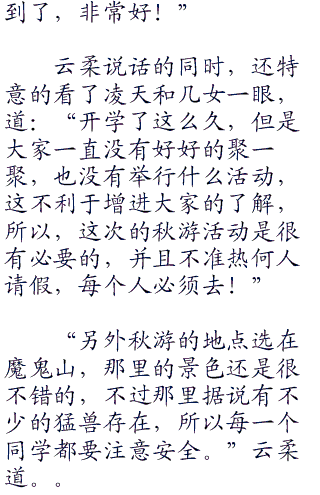 到了，非常好！”
云柔说话的同时，还特
意的看了凌天和几女一眼，
道：“开学了这么久，但是
大家一直没有好好的聚一
聚，也没有举行什么活动，
这不利于增进大家的了解，
所以，这次的秋游活动是很
有必要的，并且不准热何人
请假，每个人必须去！”
“另外秋游的地点选在
魔鬼山，那里的景色还是很
不错的，不过那里据说有不
少的猛兽存在，所以每一个
同学都要注意安全。”云柔
道。。